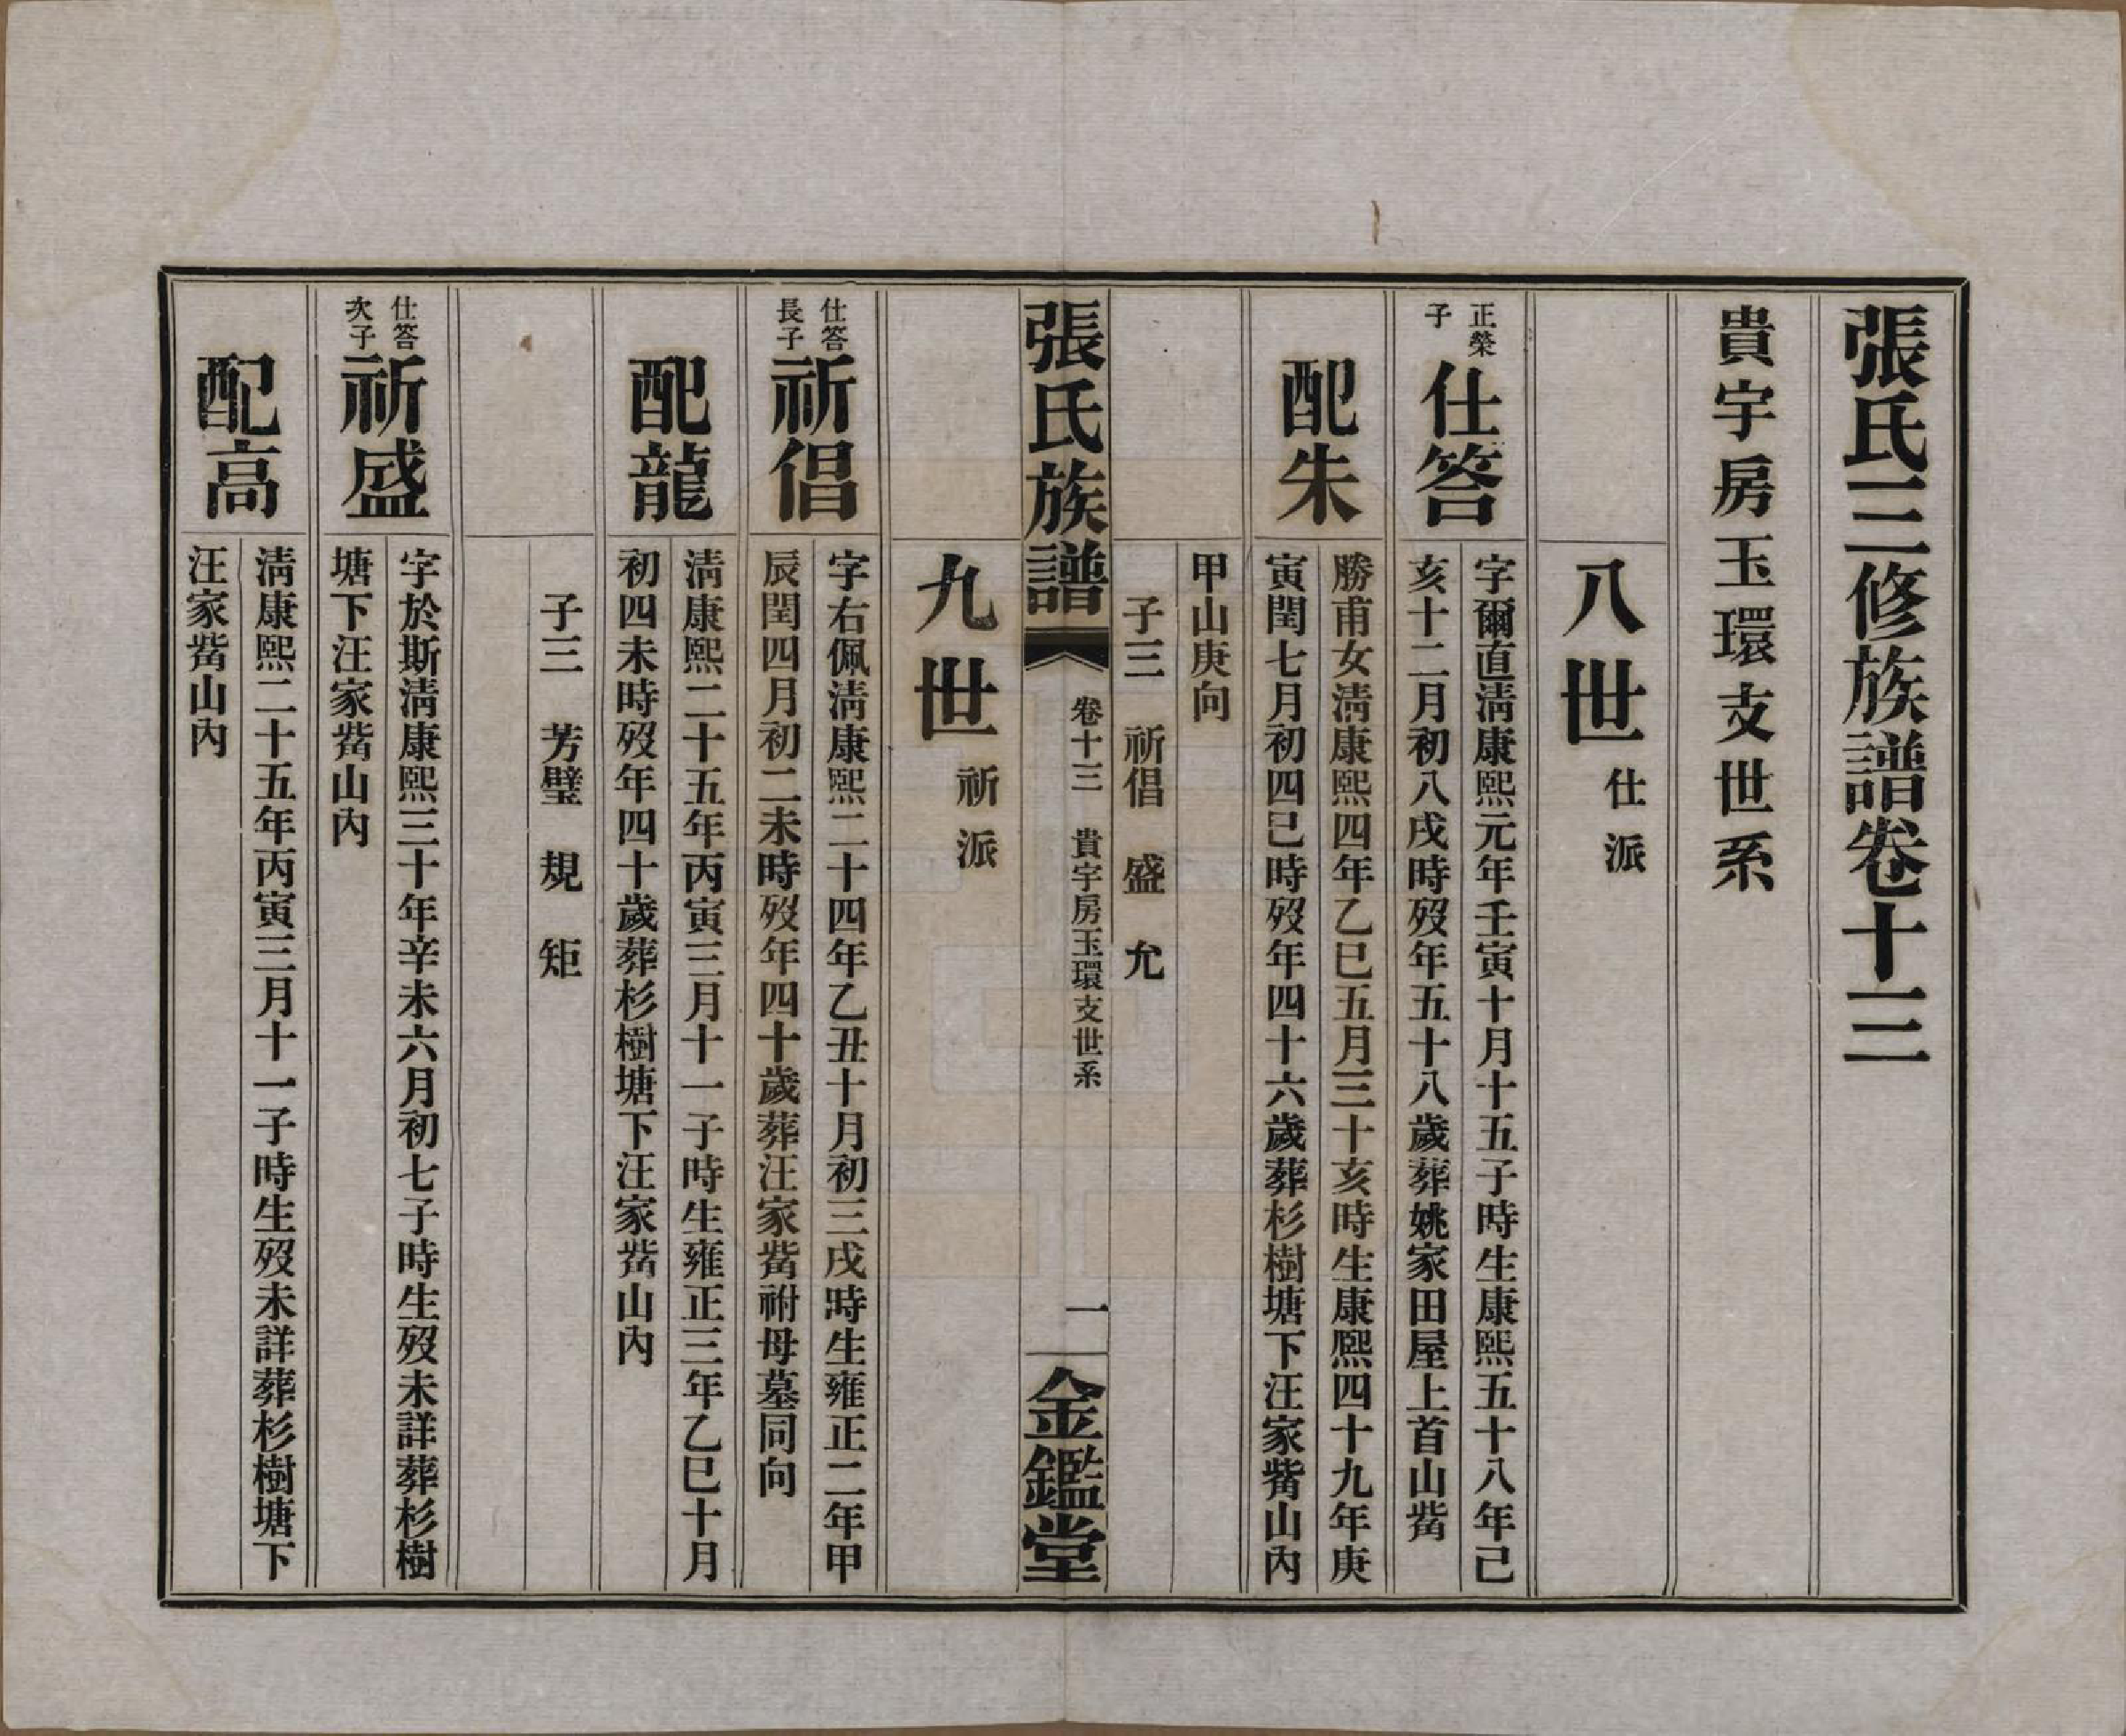 張氏三修族譜卷十三
貴宇房玉環支世系
八世 仕派
正榮
子
仕答
字爾直淸康熙元年壬寅十月十五子時生康熙五十八年己
亥十二月初八戌時歿年五十八歲葬姚家田屋上首山觜
配朱
勝甫女淸康熙四年乙巳五月三十亥時生康熙四十九年庚
寅閏七月初四巳時歿年四十六歲葬杉樹塘下汪家觜山內
甲山庚向
子三 祈倡 盛 允
張氏族譜
卷十三 貴宇房玉環支世系
一
金鑑堂
九世 祈派
仕答
長子
祈倡
字右佩淸康熙二十四年乙丑十月初三戌時生雍正二年甲
辰閏四月初二未時歿年四十歲葬汪家觜祔母墓同向
配龍
淸康熙二十五年丙寅三月十一子時生雍正三年乙巳十月
初四未時歿年四十歲葬杉樹塘下汪家觜山內
子三 芳璧 規 矩
仕答
次子
祈盛
字於斯淸康熙三十年辛未六月初七子時生歿未詳葬杉樹
塘下汪家觜山內
配高
淸康熙二十五年丙寅三月十一子時生歿未詳葬杉樹塘下
汪家觜山內